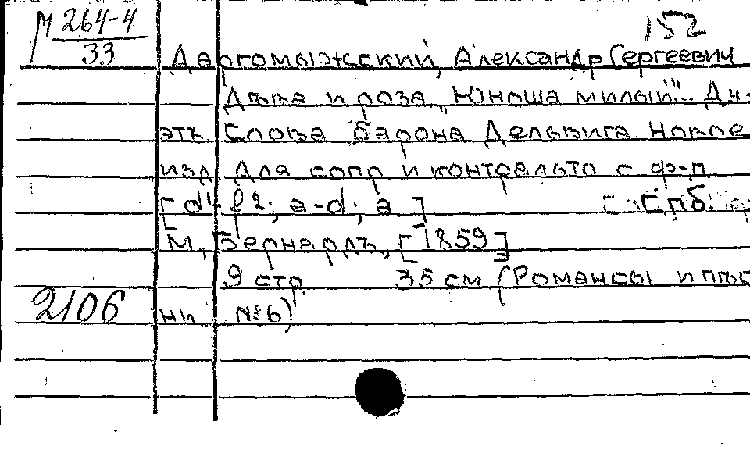 М 264-4
33
152
Даргомыжский, Александр Сергеевич
Дѣва и роза „Юноша милый"... Ду-
этъ Слова барона Дельвига Новое
изд Для сопр и контральто с ф-п
[d¹-f²; a-d; a] Спб.
М, Бернардъ, [1859]
9 стр 35 см (Романсы и пѣс
ни №6)
2106